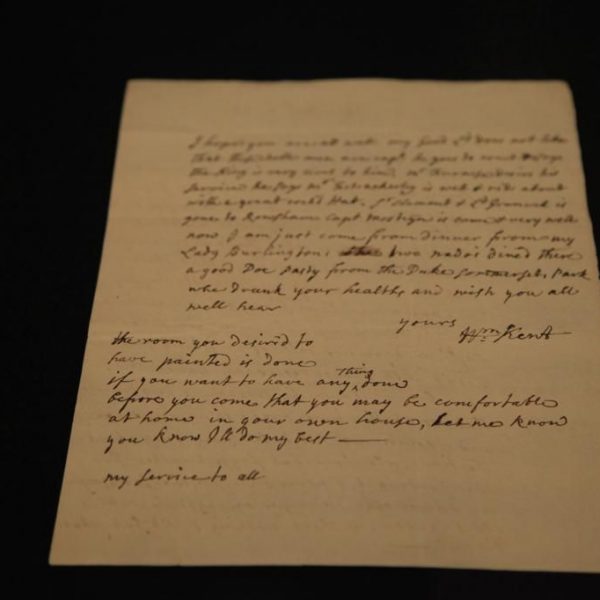 I hope you are not wet. my good Ld does not like
that the
the King is very kind to him, Mr
service he says Mr is well & rides about
with a great Hat. Sr Clement & Ld
gone to Rousham Capt Mostyn is come & very well
now I am just come from dinner from my
Lady Burlingtons: two dined there
a good Doe pasty from the Duke Somersets Park
who drank your healths and wish you all
well hear
yours Wm: Kent
the room you desird to
have painted is done
if you want to have any thing done
before you come that you may be comfortable
at home in your own house, let me know
you know I'll do my best —
my service to all